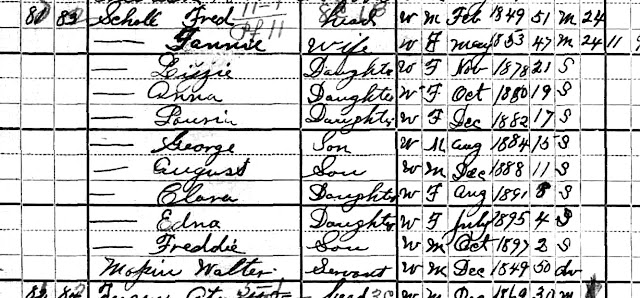 82 83 Scholl Fred Head W M Feb 1849 51 M 24
— Fannie Wife W F May 1853 47 M 24 11
— Lizzie Daughter W F Nov 1878 21 S
— Anna Daughter W F Oct 1880 19 S
— Louvia Daughter W F Dec 1882 17 S
— George Son W M Aug 1884 15 S
— August Son W M Dec 1888 11 S
— Clara Daughter W F Aug 1891 8 S
— Edna Daughter W F July 1895 4 S
— Freddie Son W M Oct 1897 2 S
Mopin Walter Servant W M Dec 1849 50 dv
Head W M Dec 1869 30 M